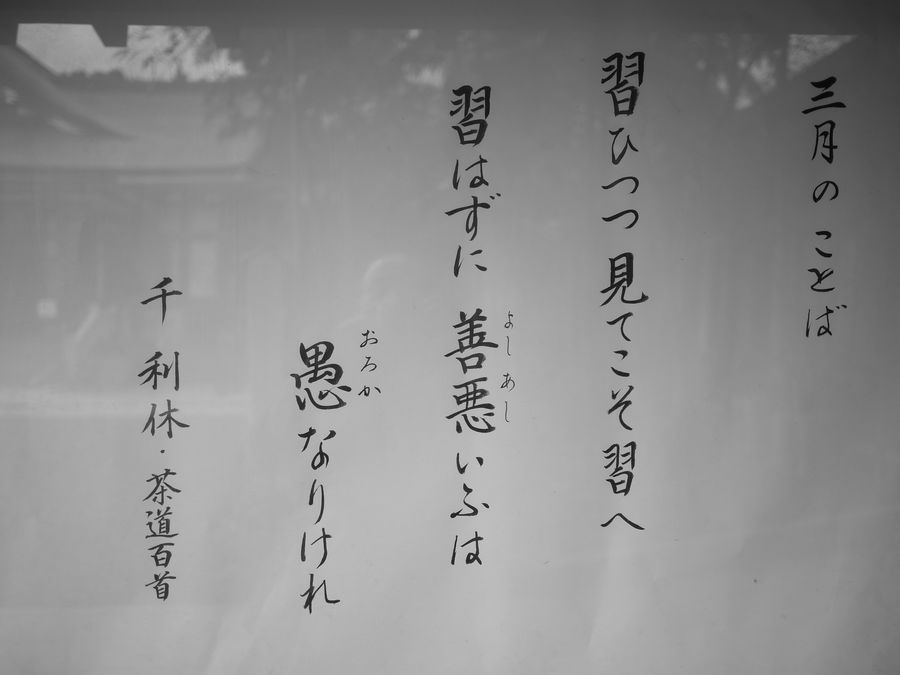 三月のことば
習ひつつ 見てこそ習へ
習はずに 善悪いふは
よし あし
愚なりけれ
おろか
千 利休・茶道百首